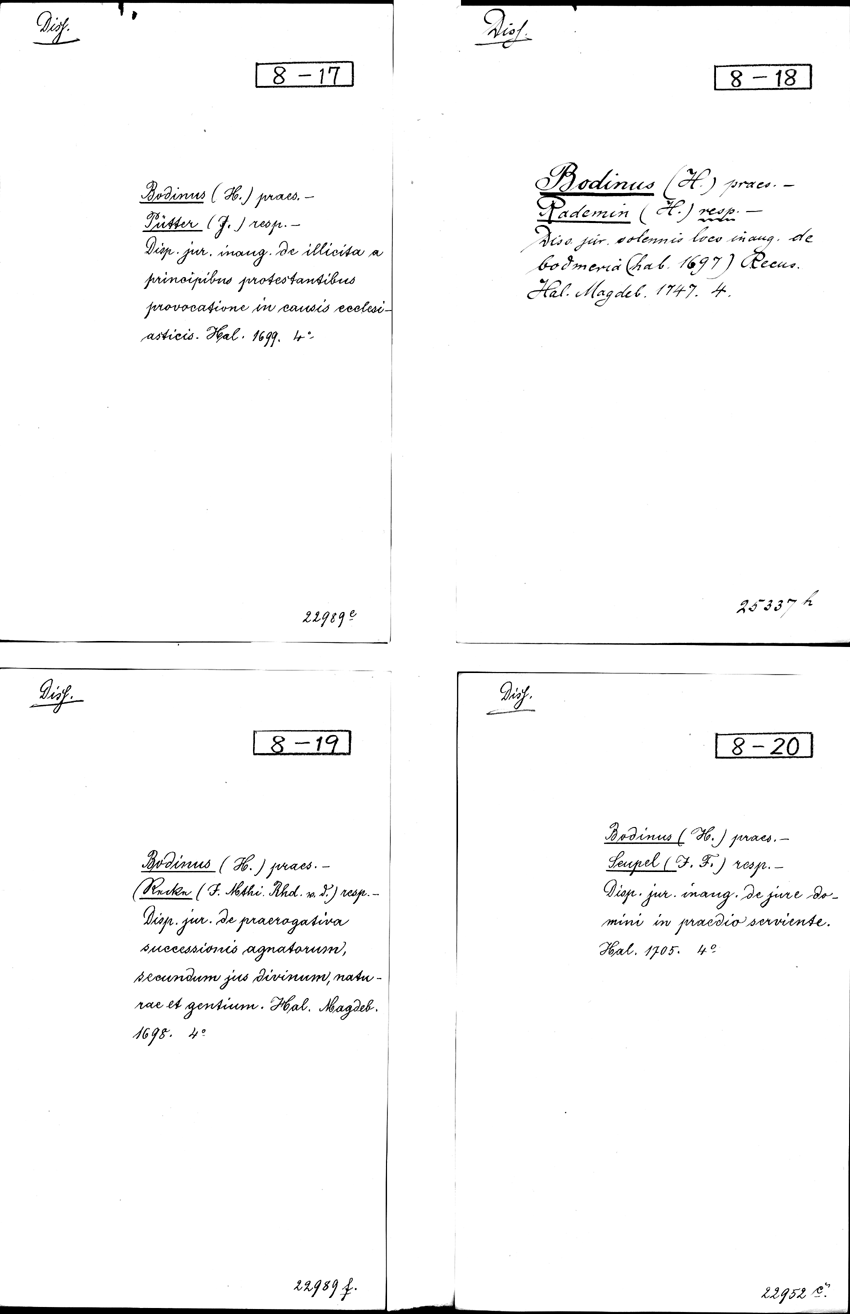 Diss.
8-17
Bodinus (H.) praes. –
Pütter (J.) resp. –
Disp. jur. inaug. de illicita a
principibus protestantibus
provocatione in causis ecclesi-
asticis. Hal. 1699. 4°
22989 e
Diss.
8-18
Bodinus (H.) praes. –
Rademin (H.) resp. –
Diss. jur. solennis loco inaug. de
bodmeria (hab. 1697) Recus.
Hal. Magdeb. 1747. 4.
25337 h
Diss.
8-19
Bodinus (H.) praes. –
(Recke (J. Mthi. Rhd. v. d.) resp. –
Disp. jur. de praerogativa
successionis agnatorum,
secundum jus divinum, natu-
rae et gentium. Hal. Magdeb.
1698. 4°
22989 f.
Diss.
8-20
Bodinus (H.) praes. –
Seupel (J. F.) resp. –
Disp. jur. inaug. de jure do-
mini in praedio serviente.
Hal. 1705. 4°
22952